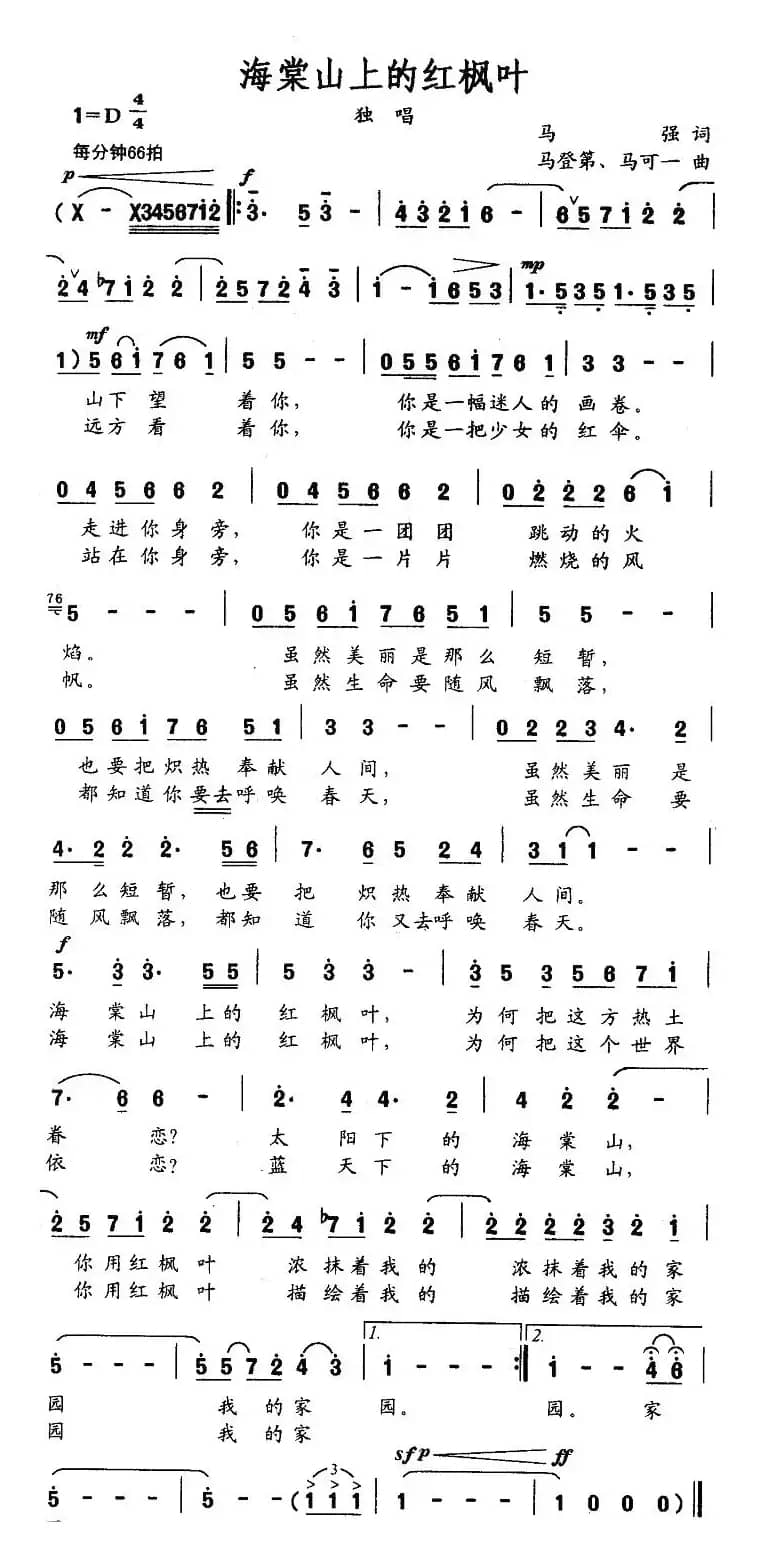 海棠山上的红枫叶
1=D 4/4
独 唱
马 强 词
每分钟66拍
马登第、马可一 曲
p f
(X - X34567i2 ‖: 3· 5 3 - | 4 3 2 1 6 - | 6 5 7 1 2 2
2 4 ♭7 1 2 2 | 2 5 7 2 4 3 | 1 - 1 6 5 3 | 1· 5 3 5 1· 5 3 5 |
mp
mf
1) 5 6 1 7 6 1 | 5 5 - - | 0 5 5 6 1 7 6 1 | 3 3 - - |
山下 望 着 你, 你是一幅迷人的 画 卷。
远方 看 着 你, 你是一把少女的 红 伞。
0 4 5 6 6 2 | 0 4 5 6 6 2 | 0 2 2 2 6 1
走进你身 旁, 你是一团 团 跳动的 火
站在你身 旁, 你是一片 片 燃烧的 风
76
5 - - - | 0 5 6 1 7 6 5 1 | 5 5 - - |
焰。 虽然美丽是那么 短 暂,
帆。 虽然生命要随风 飘 落,
0 5 6 1 7 6 5 1 | 3 3 - - | 0 2 2 3 4· 2 |
也要把炽热 奉献 人 间, 虽然美丽 是
都知道你要去呼唤 春 天, 虽然生命 要
4· 2 2 2· 5 6 | 7· 6 5 2 4 | 3 1 1 - - |
那么短 暂, 也要 把 炽热奉献 人 间。
随风飘 落, 都知 道 你又去呼唤 春 天。
f
5· 3 3· 5 5 | 5 3 3 - | 3 5 3 5 6 7 1 |
海 棠山 上的 红 枫 叶, 为何把这方热土
海 棠山 上的 红 枫 叶, 为何把这个世界
7· 6 6 - | 2· 4 4· 2 | 4 2 2 -
眷 恋? 太 阳下 的 海 棠 山,
依 恋? 蓝 天下 的 海 棠 山,
2 5 7 1 2 2 | 2 4 ♭7 1 2 2 | 2 2 2 2 3 2 1 |
你用红枫 叶 浓抹着我 的 浓抹着我 的 家
你用红枫 叶 描绘着我 的 描绘着我 的 家
1. 2.
5 - - - | 5 5 7 2 4 3 | 1 - - - :‖ 1 - - 4 6 |
园 我 的 家 园。 园。 家
园 我 的 家
sfp ff
3
5 - - - | 5 - (1 1 1 | 1 - - - | 1 0 0 0)‖